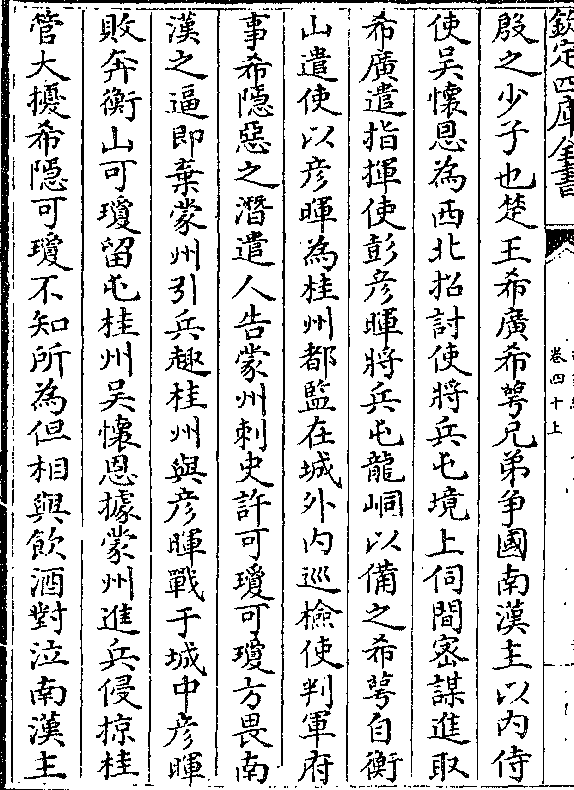 欽定四庫全書
卷四十上
殷之少子也楚王希廣希萼兄弟爭國南漢主以內侍
使吳懷恩為西北招討使將兵屯境上伺間密謀進取
希廣遣指揮使彭彥暉將兵屯龍峒以備之希萼自衡
山遣使以彥暉為桂州都監在城外內巡檢使判軍府
事希隱惡之潛遣人告蒙州刺史許可瓊可瓊方畏南
漢之逼即棄蒙州引兵趣桂州與彥暉戰于城中彥暉
敗奔衡山可瓊留屯桂州吳懷恩據蒙州進兵侵掠桂
管大擾希隱可瓊不知所為但相與飲酒對泣南漢主